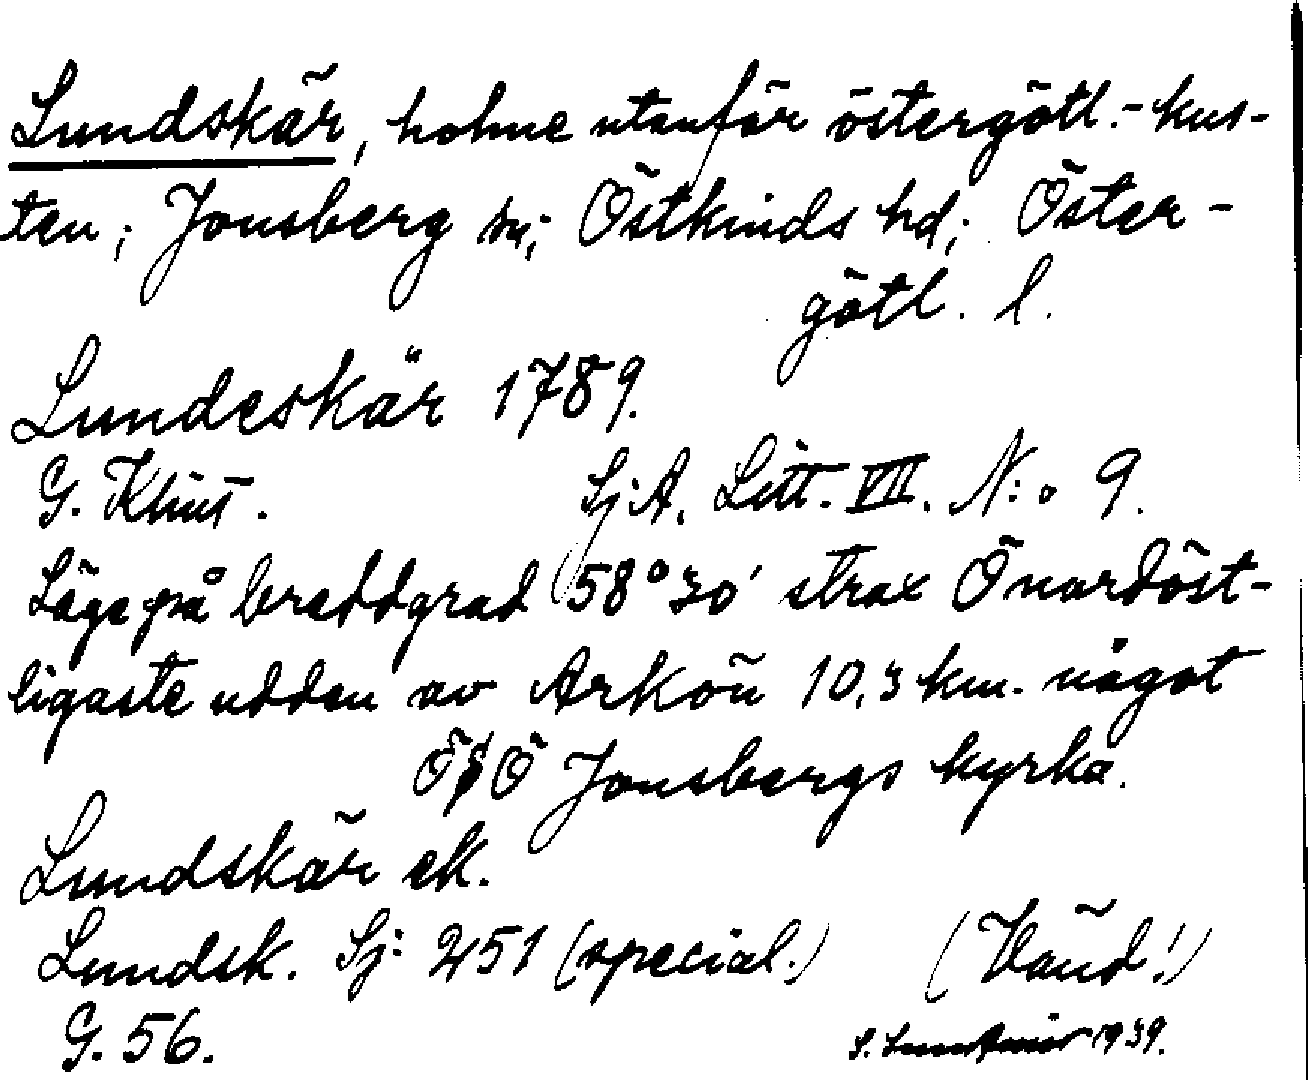 Lundskär, holme utanför östergötl.-kus-
ten; Jonsberg sn; Östkinds hd; Öster-
götl. l.
Lundeskär 1789.
G. Klint. Sj.A. Litt. VII. N:o 9.
Läge på breddgrad 58° 30' strax Ö nordöst-
ligaste udden av Arkön 10,3 km. något
ÖSÖ Jonsbergs kyrka.
Lundskär ek.
Lundsk. Sj: 251 (special.) (Vänd!)
G. 56. S. 1939.